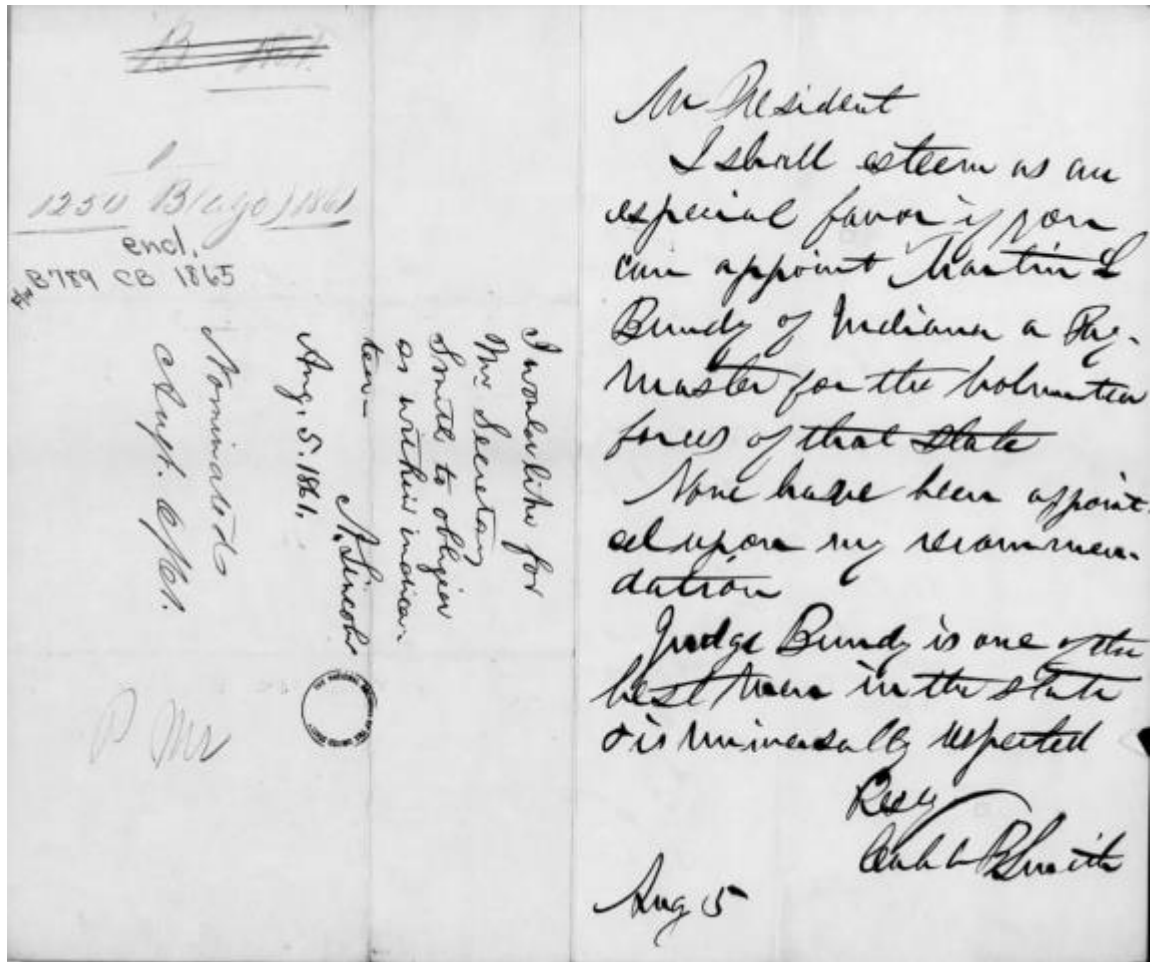 B 1861.
1
1250 B (ago) 1861
encl.
B789 CB 1865
Nominated
Sept. 5/61.
P Mr
I would like for
Mr. Secretary
Smith to obliged
as within indica-
ted—
A. Lincoln
Aug. 5. 1861.
Mr President
I shall esteem as an
especial favor if you
can appoint Martin L
Bundy of Indiana a Pay-
master for the volunteer
forces of that state
None have been appoint-
ed upon my recommen-
dation
Judge Bundy is one of the
best men in the state
& is universally respected
Resy
Caleb B Smith
Aug 5